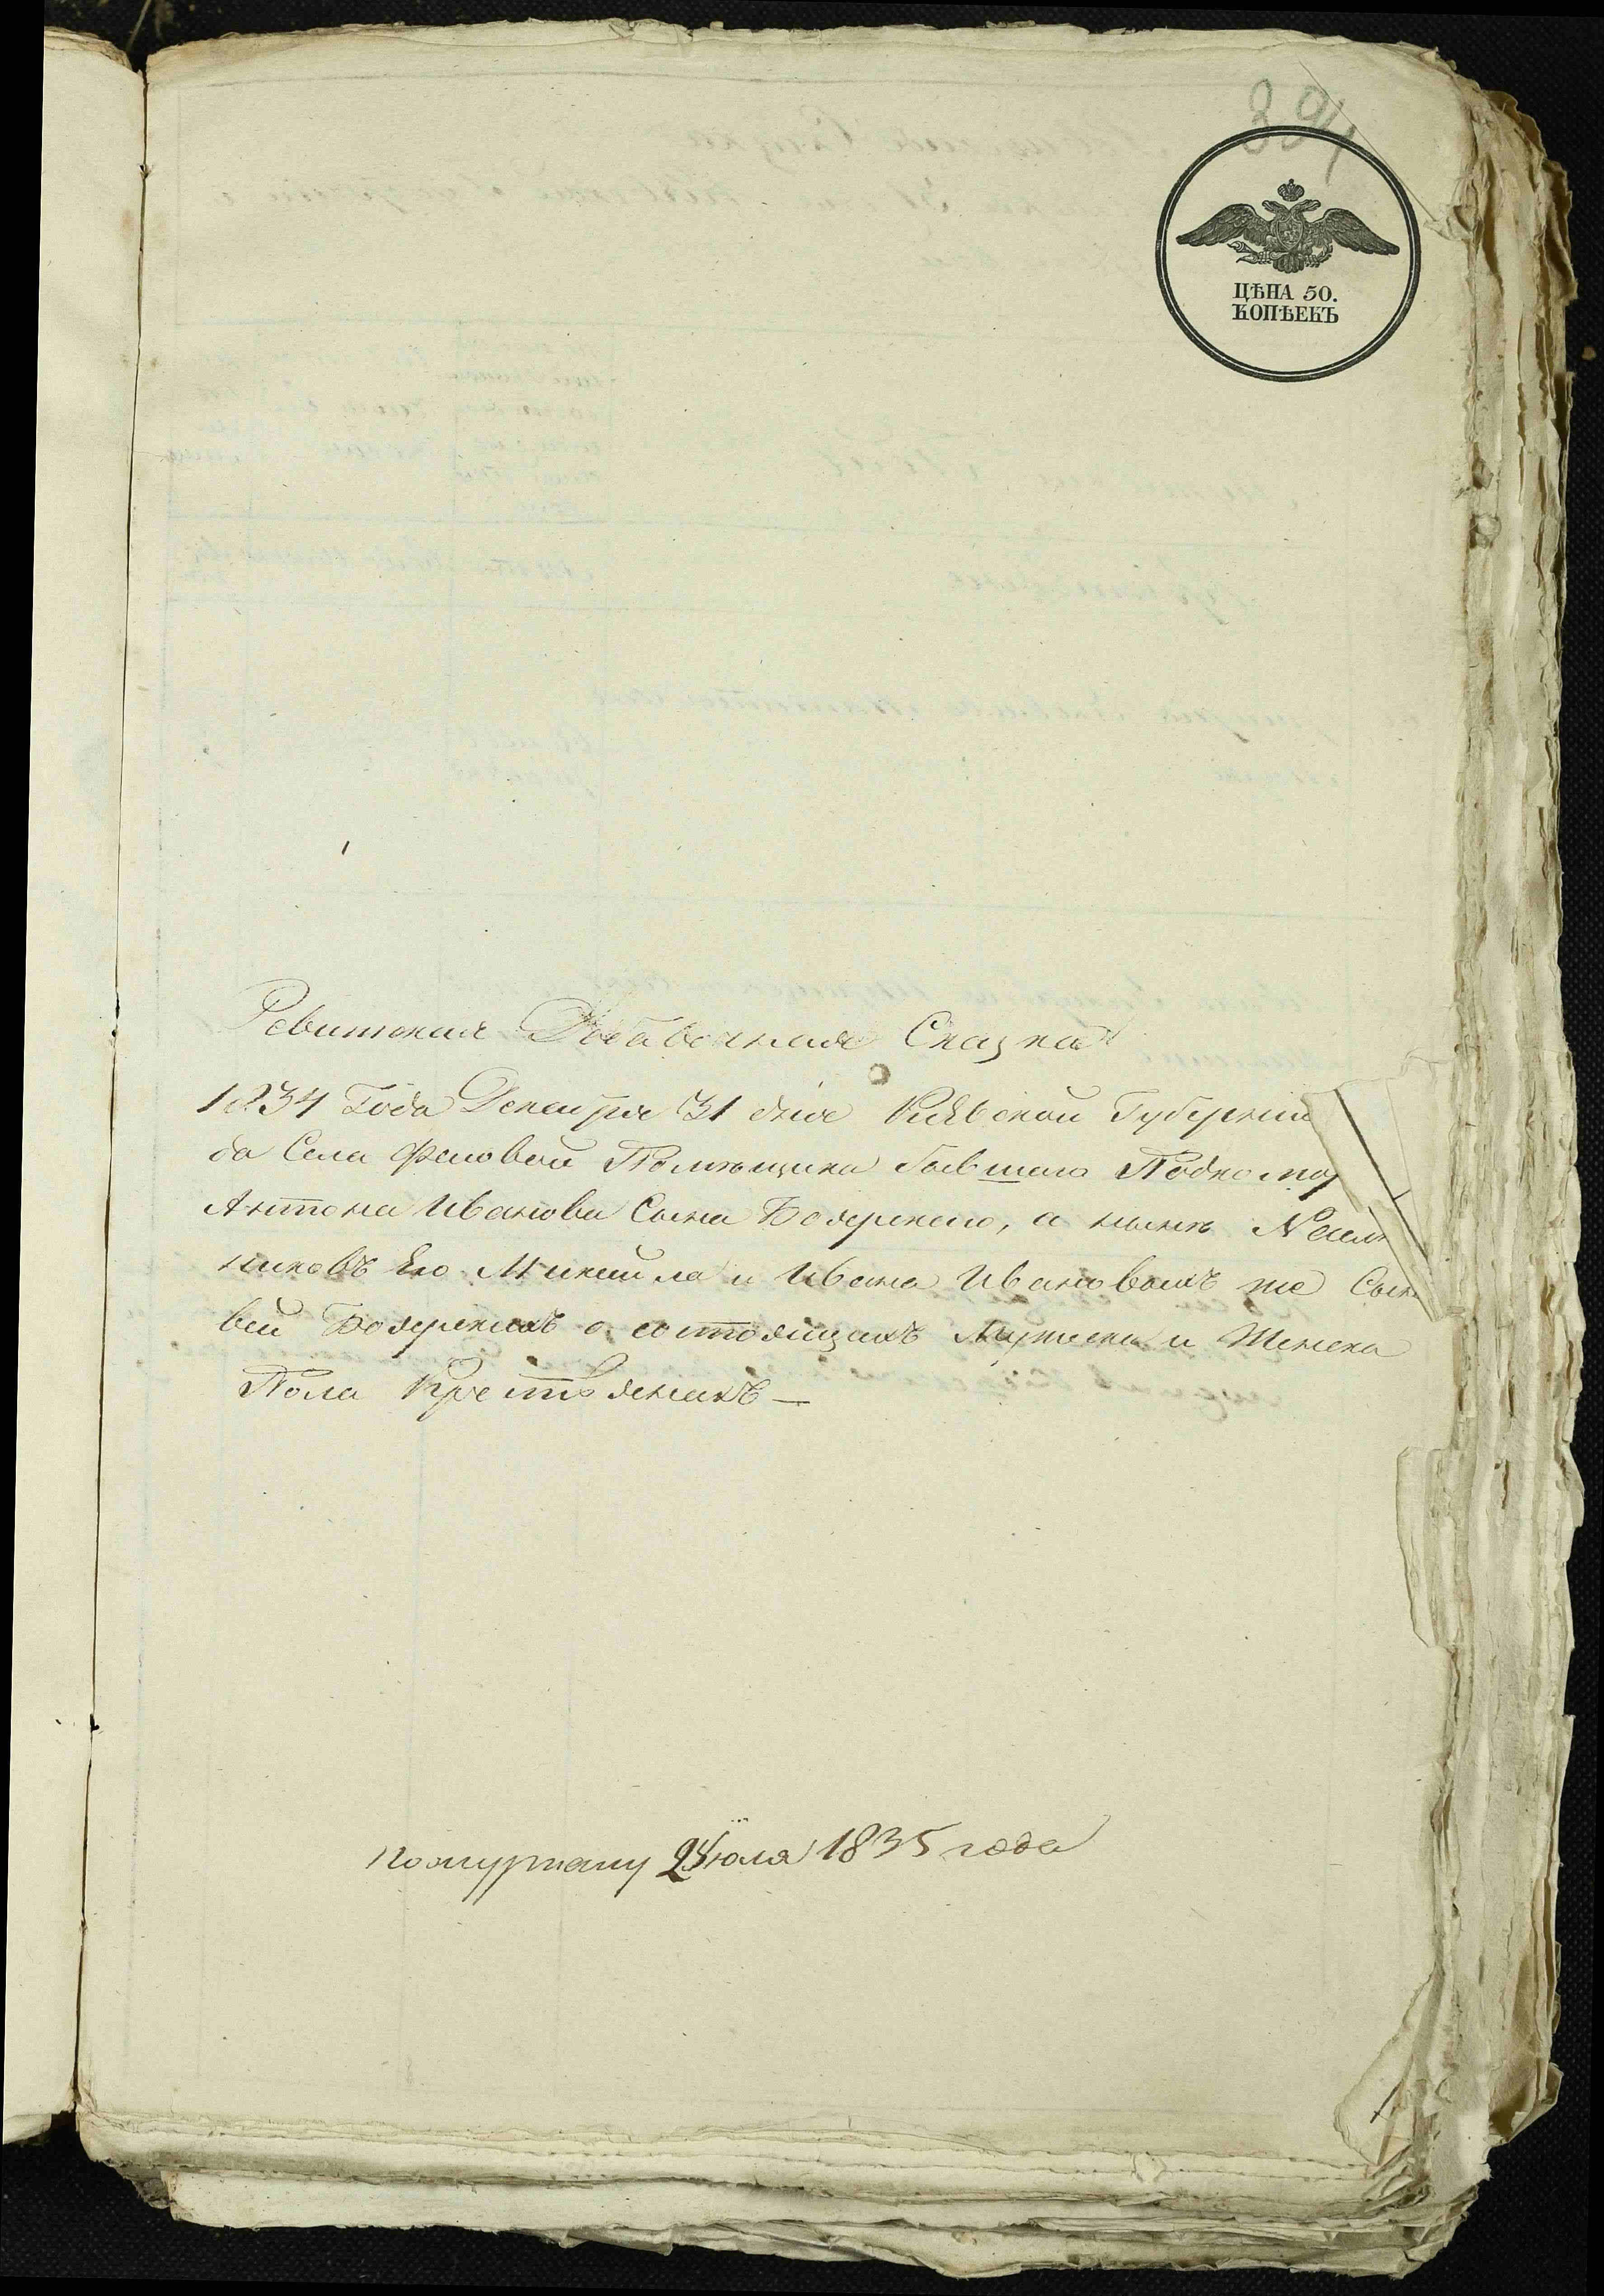 394
ЦѢНА 50.
КОПѢЕКЪ
Ревижская Добавочная Сказка
1834 Года Декабря 31 дня Кіевской Губерніи
да Села Помѣщика бывшаго Подкомор
Антона Иванова Сына Боярского, а нынѣ Наслѣд
никовъ Его Михайла и Ивана Ивановыхъ же Сыно
вей Боярскихъ о состоящихъ Мужеска и Женска
Пола Крестьянахъ —
По журналу 2 Июля 1835 года